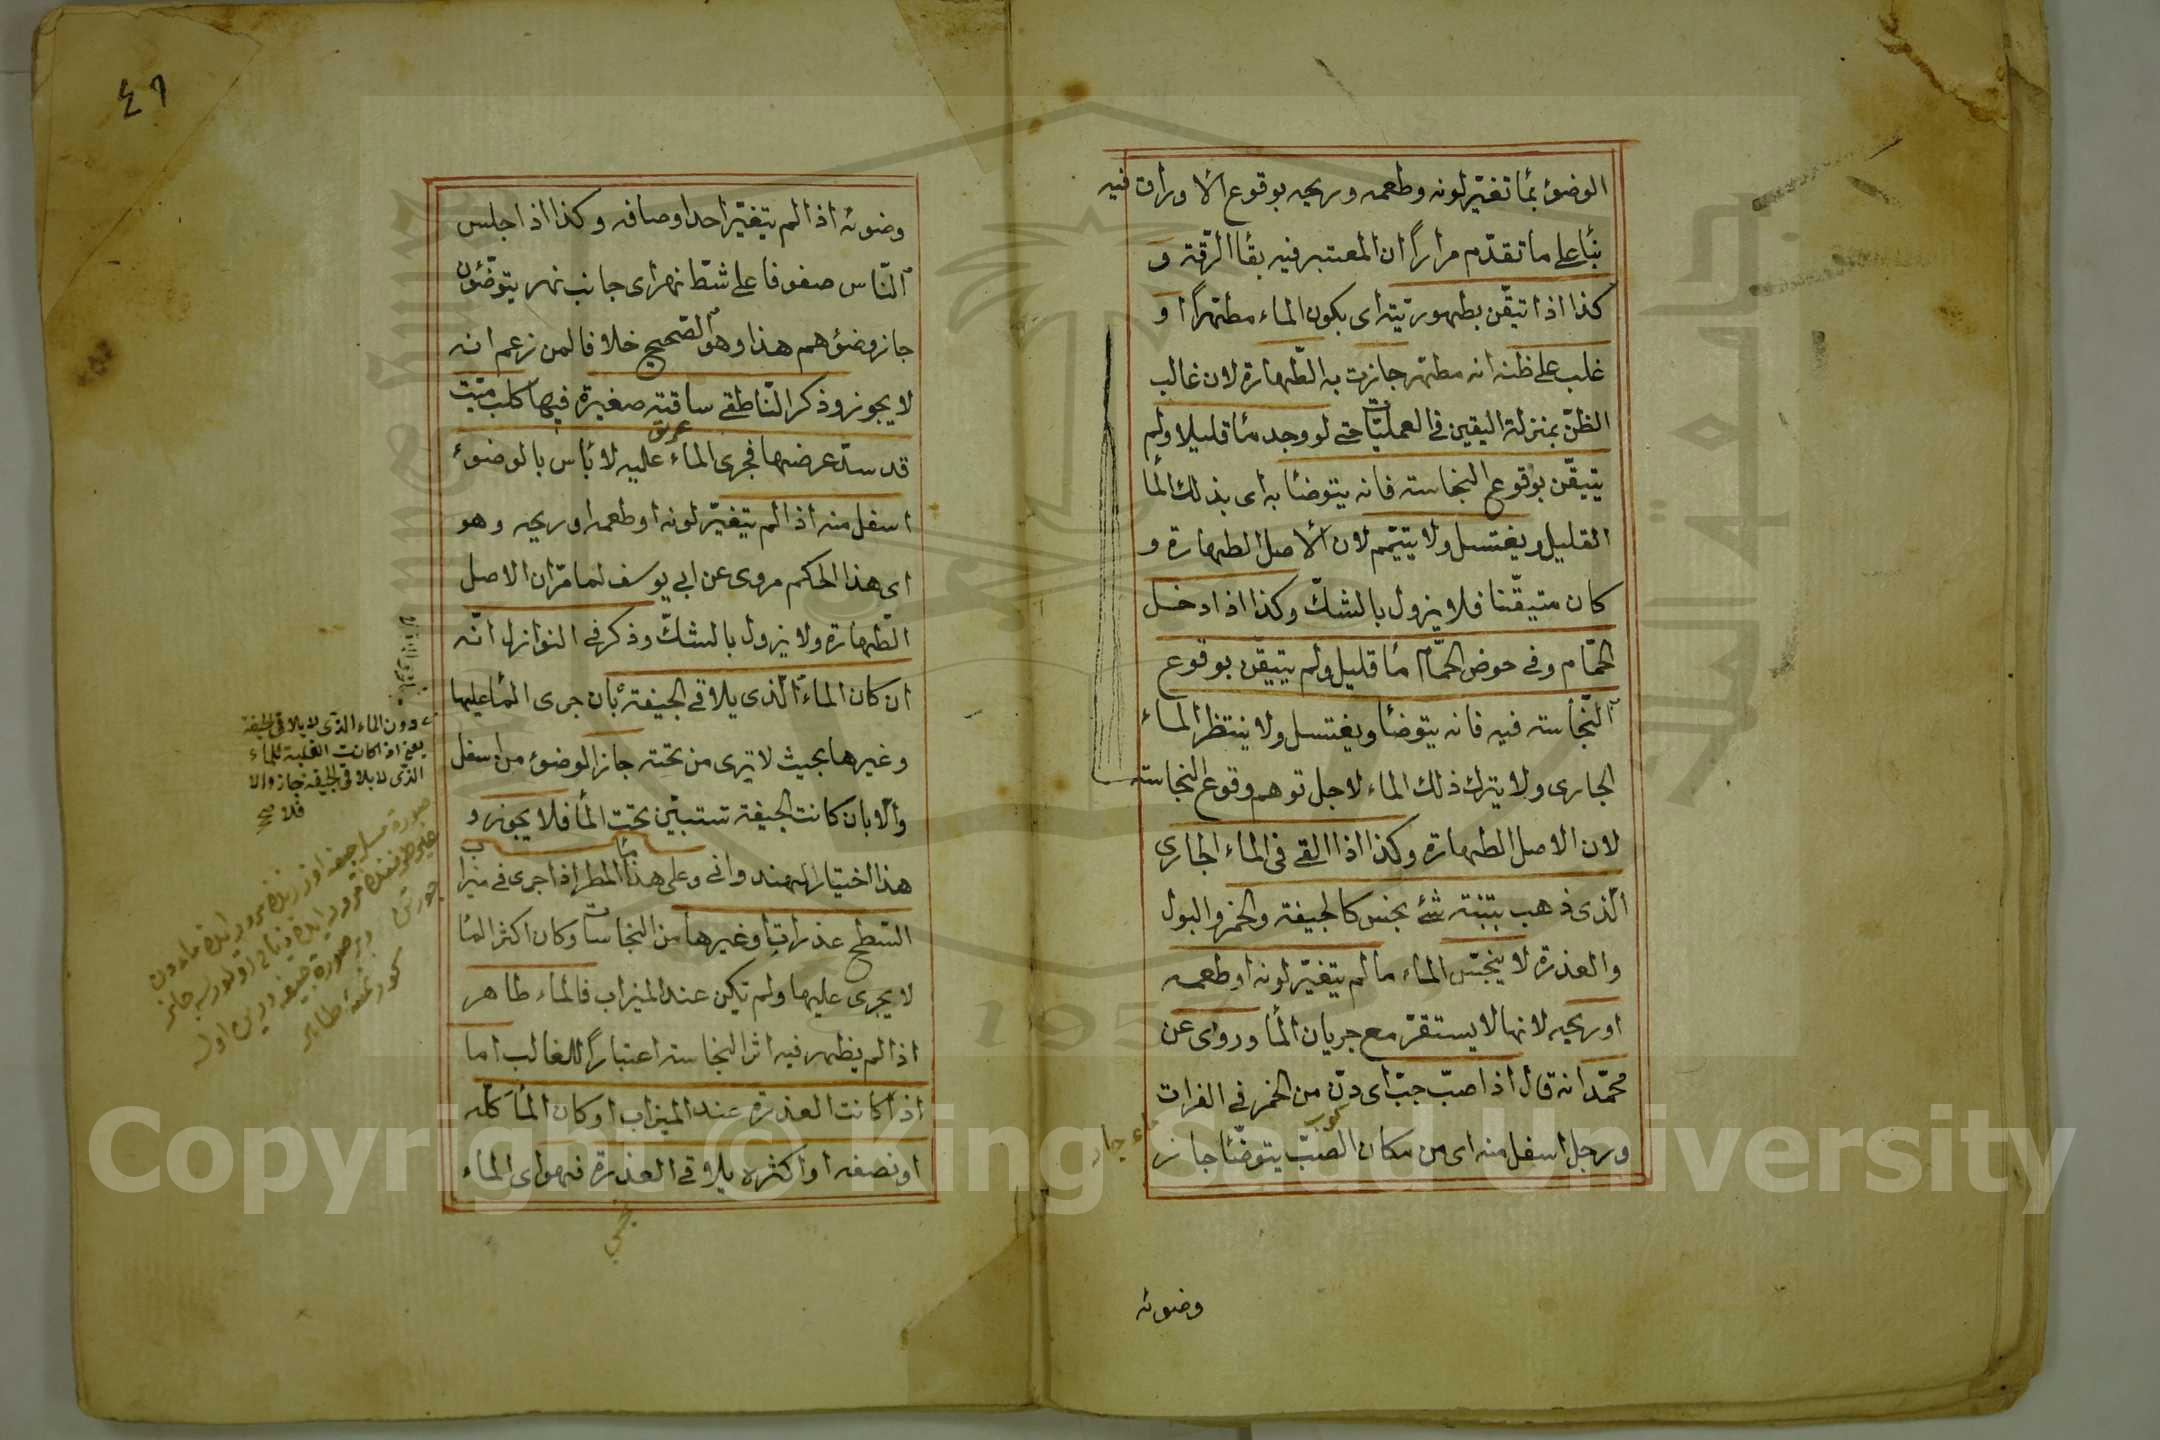 الوضوء بما تغيّر لونه وطعمه وريحه بوقوع الاوراق فيه
بناء على ما تقدّم مرارًا ان المعتبر فيه بقاء الرّقة و
كذا اذا تيقّن بطهوريّته اى بكون الماء مطهرًا او
غلب على ظنه انه مطهر جازت به الطّهارة لان غالب
الظنّ بمنزلة اليقين فى العمليّات حتى لو وجد ماء قليلا ولم
يتيقّن بوقوع النجاسته فانه يتوضا به اى بذلك الماء
القليل ويغتسل ولا يتيمّم لان الاصل الطهارة و
كان متيقّنا فلا يزول بالشكّ وكذا اذا دخل
الحمّام وفى حوض الحمّام ماء قليل ولم يتيقّن بوقوع
النّجاسته فيه فانه يتوضا ويغتسل ولا ينتظر الماء
الجارى ولا يترك ذلك الماء لاجل توهم وقوع النجاسته
لان الاصل الطهارة وكذا اذا القى فى الماء الجارى
الّذى ذهب بتبنته شئ نجس كالجيفة والخمر والبول
والعذرة لا ينجّس الماء ما لم يتغيّر لونه او طعمه
او ريحه لانها لا يستقرّ مع جريان الماء وروى عن
محمّد انه قال اذا صبّ جبّ اى دنّ من الخمر فى الفرات
ورجل اسفل منه اى من مكان الصّبّ يتوضّا جاز
وضوئه
٤٦
وضوئه اذا لم يتغيّر احد اوصافه وكذا اذا جلس
النّاس صفوفا على شطّ نهر اى جانب نهر يتوضّئون
جاز وضوؤهم هذا وهو الصّحيح خلافا لمن زعم انه
لا يجوز وذكر النّاطقى ساقته صغيرة فيها كلب ميّت
قد سدّ عرضها فجرى الماء عليه لا باس بالوضوء
اسفل منه اذا لم يتغيّر لونه او طعمه او ريحه وهو
اى هذا الحكم مروى عن ابى يوسف لما مرّ ان الاصل
الطّهارة ولا يزول بالشكّ وذكر فى النوازل انّه
ان كان الماء الّذى يلاقى الجيفة بان جرى الماء عليها
وغيرها بحيث لا يرى من تحته جاز الوضوء من اسفل
والّا بان كانت الجيفة تستبين تحت الماء فلا يجوز و
هذا اختيار الهندوانى وعلى هذا ماء المطر اذا جرى فى ميزاب
السّطح عذرات او غيرها من النجاسات وكان اكثر الماء
لا يجرى عليها ولم تكن عند الميزاب فالماء طاهر
اذا لم يظهر فيه اثر النجاسته اعتبارًا للغالب اما
اذا كانت العذرة عند الميزاب او كان الماء كله
او نصفه او اكثره يلاقى العذرة فهو اى الماء
دون الماء الذى لا يلاقى الجيفة
يعنى اذا كانت الغلبة للماء
الذى لا يلاقى الجيفة جاز والا
فلا صح